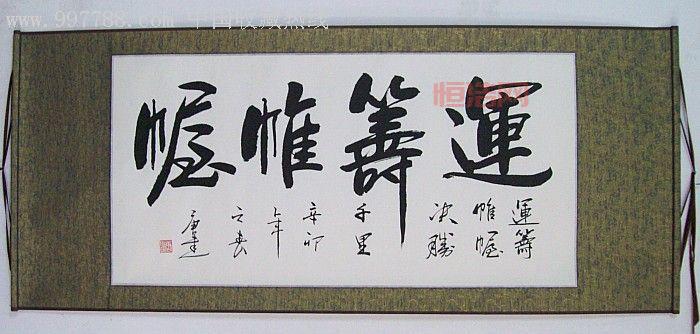 www.997788.com 中国收藏热线
運籌帷幄
運籌
帷幄
决勝
千里
辛卯
年
之春